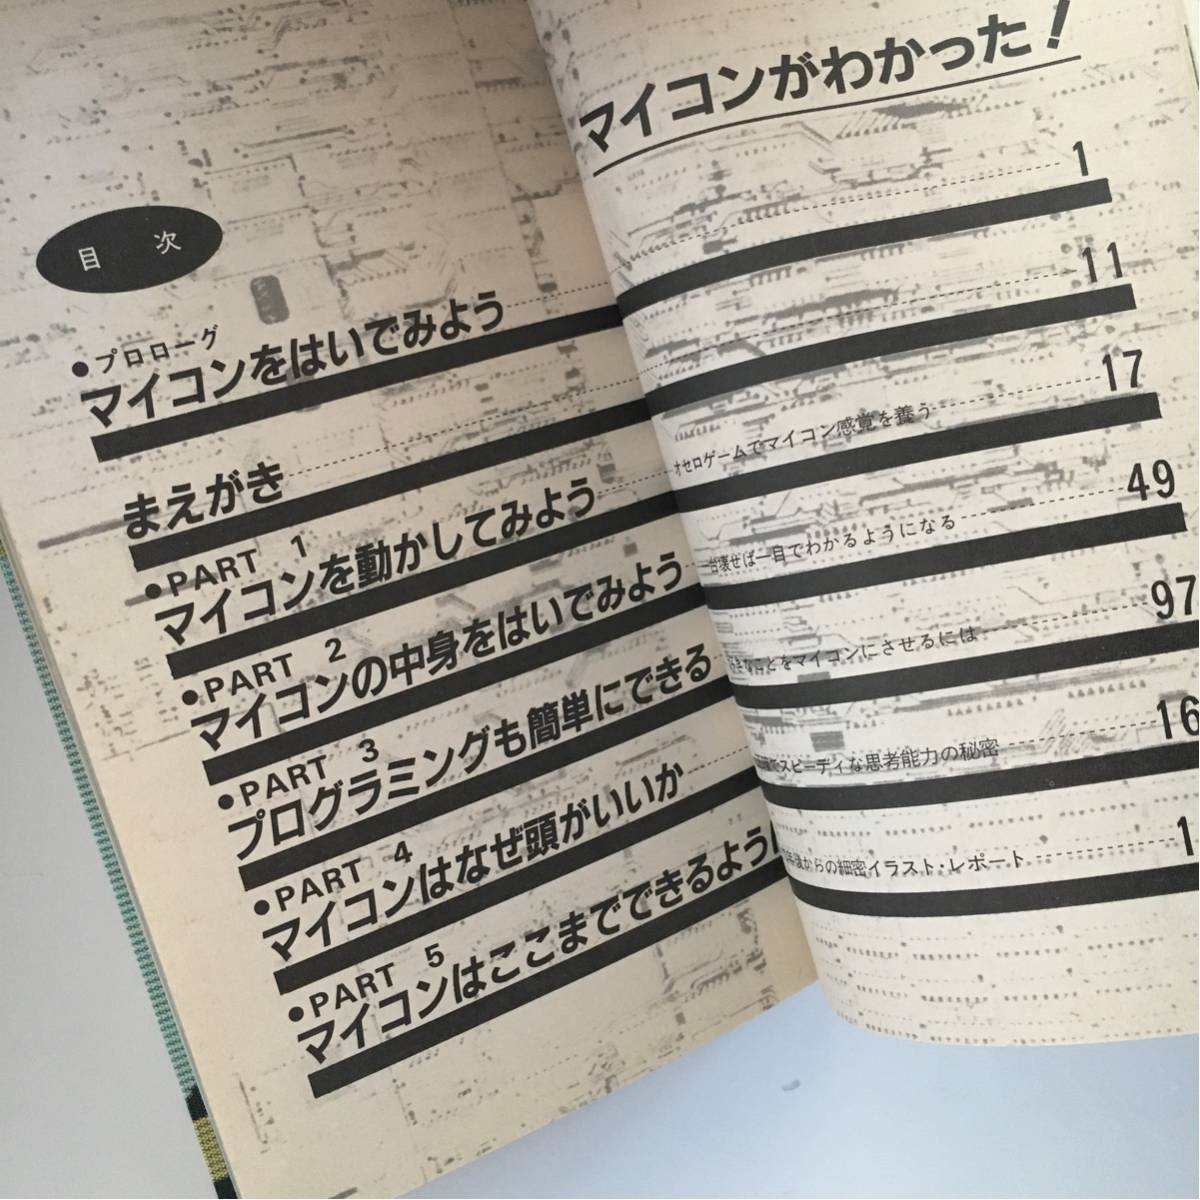 マイコンがわかった!
目次
●プロローグ
マイコンをはいでみよう 1
まえがき 11
●PART 1
マイコンを動かしてみよう オセロゲームでマイコン感覚を養う 17
●PART 2
マイコンの中身をはいでみよう 一台壊せば一目でわかるようになる 49
●PART 3
プログラミングも簡単にできる なことをマイコンにさせるには 97
●PART 4
マイコンはなぜ頭がいいか スピーディな思考能力の秘密 16
●PART 5
マイコンはここまでできるように からの細密イラスト・レポート 1